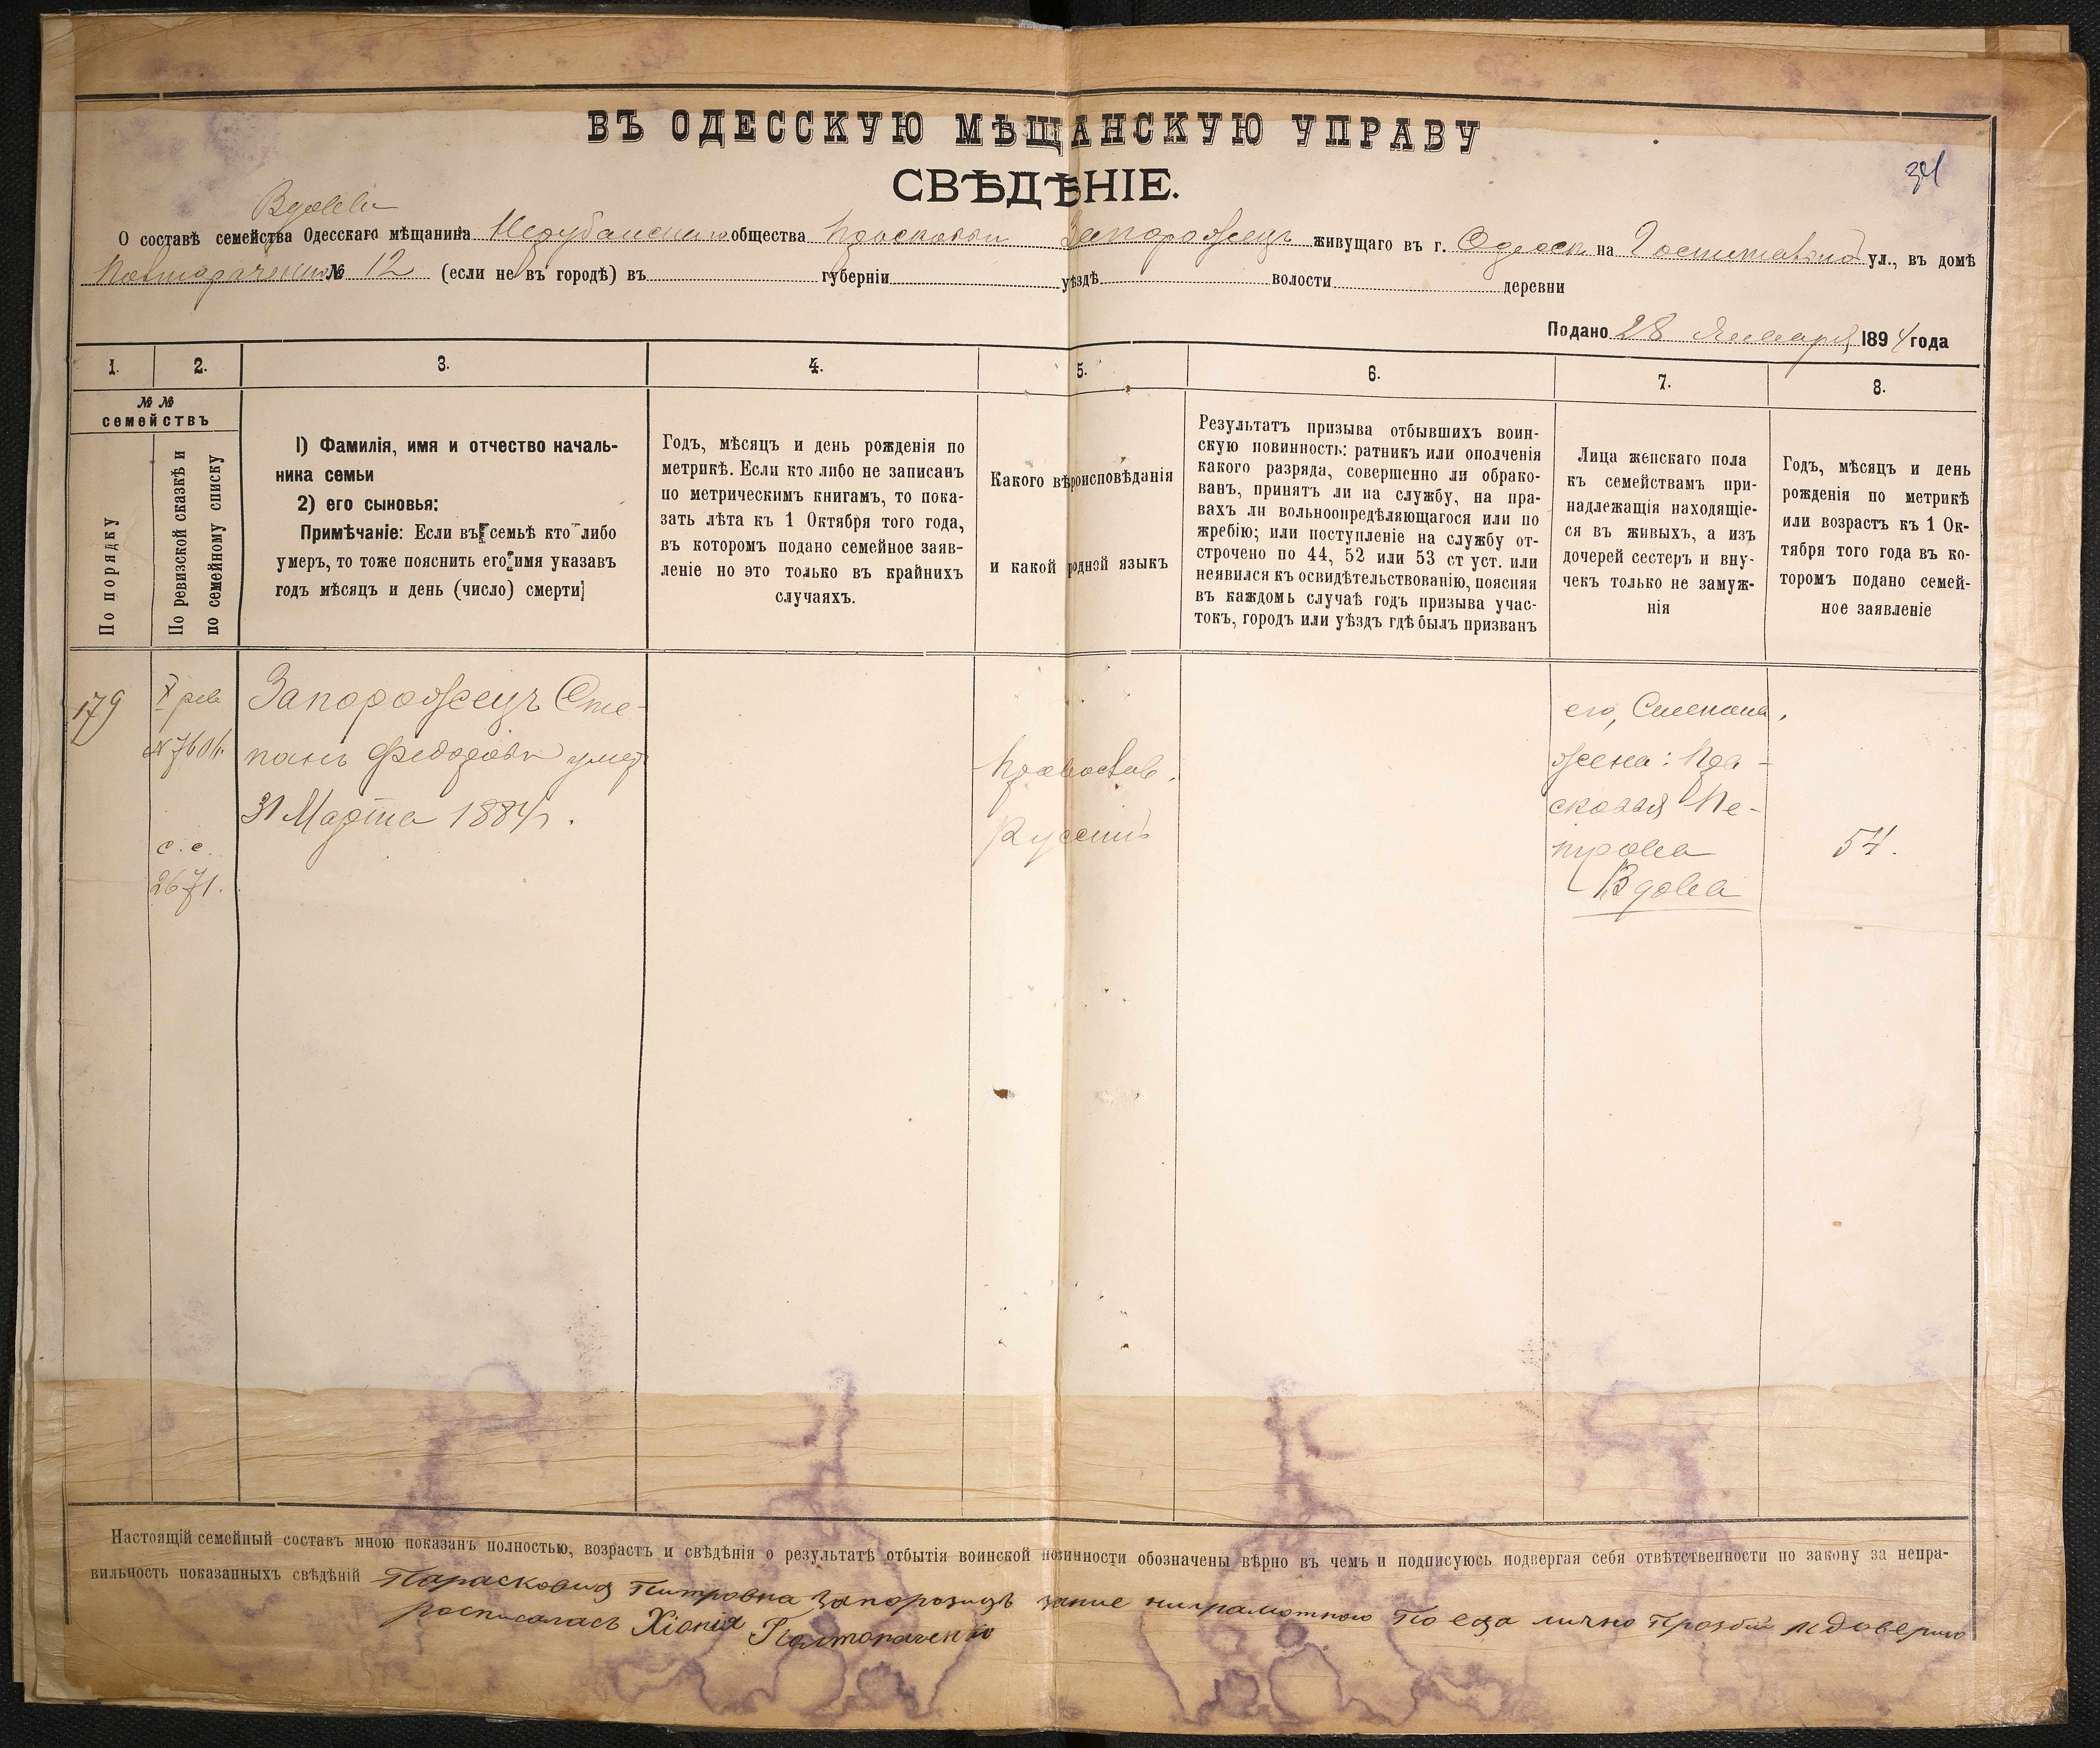 ВЪ ОДЕССКУЮ МѢЩАНСКУЮ УПРАВУ
34
СВѢДѢНІЕ.
Вдовы
О составѣ семейства Одесскаго мѣщанина общества Просковьи Запорожецъ живущаго въ г. Одессѣ на ул., въ домѣ
№ 12 (если не въ городѣ) въ губерніи уѣздѣ волости деревни
Подано 28 Января 1894 года
1. 2. 3. 4. 5. 6. 7. 8.
№ №
семействъ
По порядку
По ревизской сказкѣ и
по семейному списку
1) Фамилія, имя и отчество началь-
ника семьи
2) его сыновья:
Примѣчаніе: Если въ семьѣ кто либо
умеръ, то тоже пояснить его имя указавъ
годъ мѣсяцъ и день (число) смерти
Годъ, мѣсяцъ и день рожденія по
метрикѣ. Если кто либо не записанъ
по метрическимъ книгамъ, то пока-
зать лѣта къ 1 Октября того года,
въ котором подано семейное заяв-
леніе но это только въ крайнихъ
случаяхъ.
Какого вѣроисповѣданія
и какой родной языкъ
Результатъ призыва отбывшихъ воин-
скую повинность: ратникъ или ополченія
какого разряда, совершенно ли обрако-
ванъ, принятъ ли на службу, на пра-
вахъ ли вольноопредѣляющагося или по
жребію; или поступленіе на службу от-
строчено по 44, 52 или 53 ст уст. или
неявился къ освидѣтельствованію, поясняя
въ каждомъ случаѣ годъ призыва учас-
токъ, городъ или уѣздъ гдѣ былъ призванъ
Лица женскаго пола
къ семействамъ при-
надлежащія находящіе-
ся въ живыхъ, а изъ
дочерей сестеръ и вну-
чекъ только не замуж-
нія
Годъ, мѣсяцъ и день
рожденія по метрикѣ
или возрастъ къ 1 Ок-
тября того года въ ко-
торомъ подано семей-
ное заявленіе
179
X рев
с. с.
2671.
Запорожецъ Сте-
панъ Федоровъ умер
31 Марта 1884 г.
Православ.
Русскій
его, Степана,
жена: Пра-
сковья Пе-
трова
Вдова
54.
Настоящій семейный составъ мною показанъ полностью, возрастъ и свѣдѣнія о результатѣ отбытія воинской повинности обозначены вѣрно въ чемъ и подписуюсь подвергая себя отвѣтственности по закону за непра-
вильность показанныхъ свѣдѣній Парасковия Питровна Запорозицъ ниграмотною По ея лично Прозби и доверию
росписалась Хіонія Полтораченко